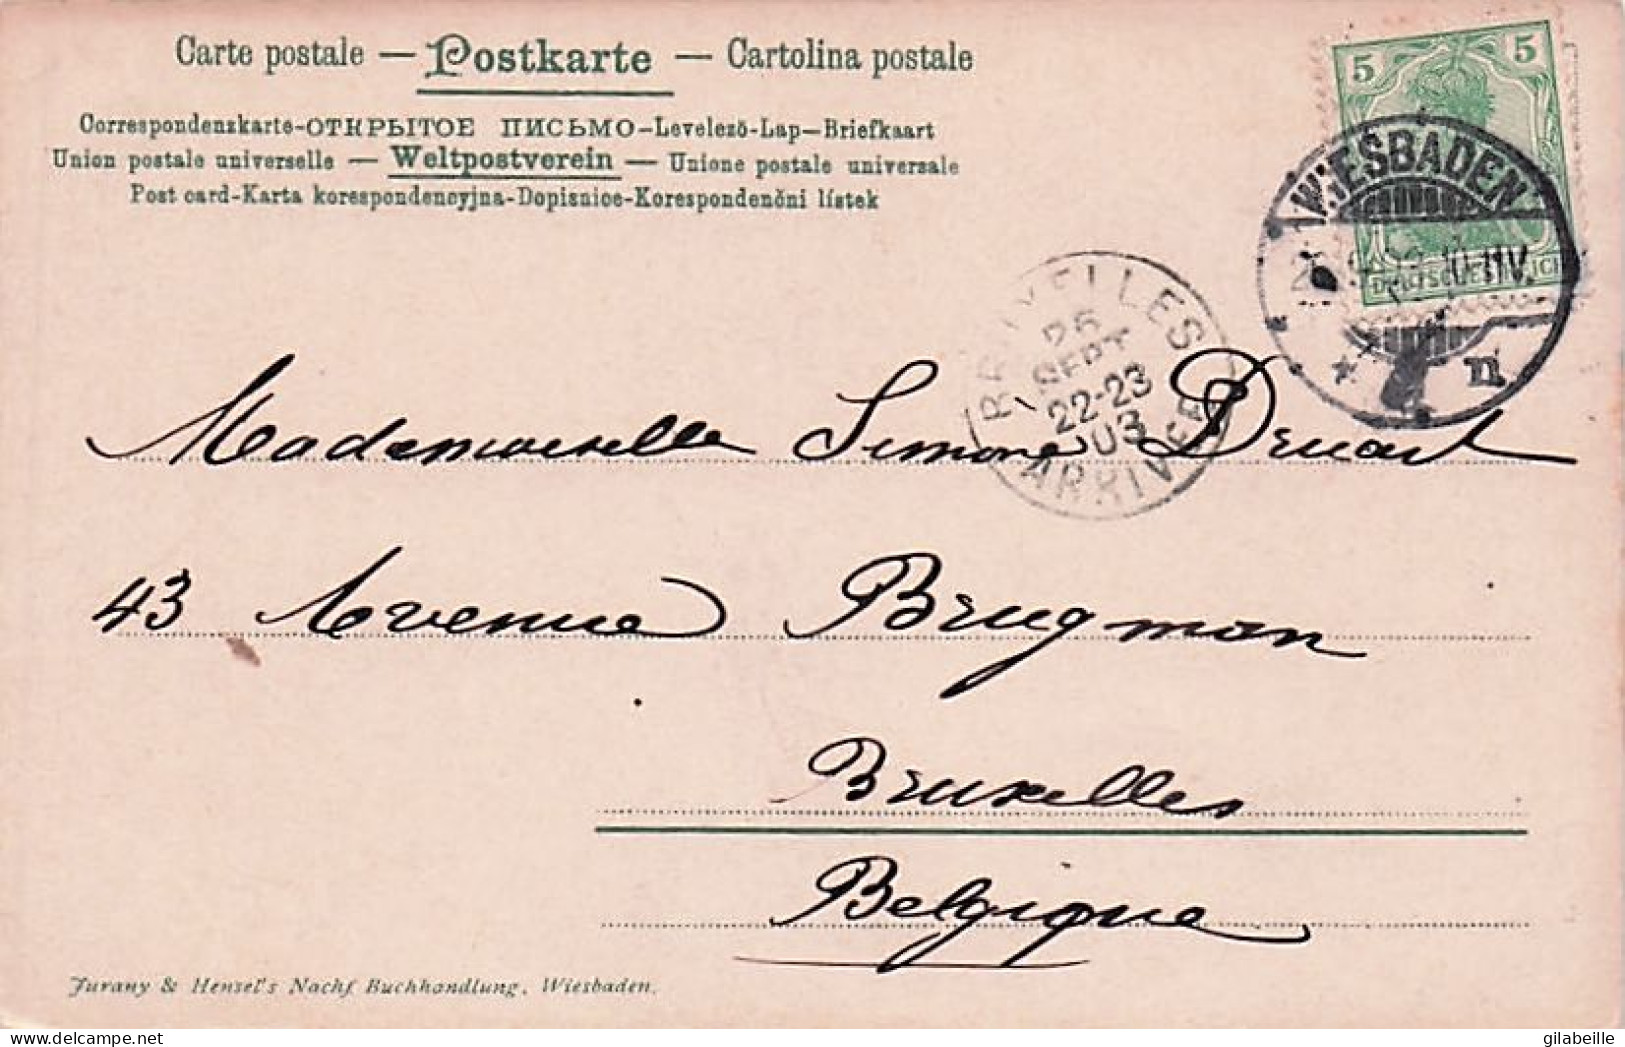 Carte postale — Postkarte — Cartolina postale
Correspondenzkarte-ОТКРЫТОЕ ПИСЬМО-Levelező-Lap-Briefkaart
Union postale universelle — Weltpostverein — Unione postale universale
Post card-Karta korespondencyjna-Dopisnice-Korespondenční lístek
5 5
WIESBADEN
DEUTSCHES REICH
n
BRUXELLES
26
SEPT
22-23
03
ARRIVEE
Mademoiselle Simone Druart
43 Avenue Brugman
Bruxelles
Belgique
Jurany & Hensel's Nachf Buchhandlung, Wiesbaden.
gilabeille